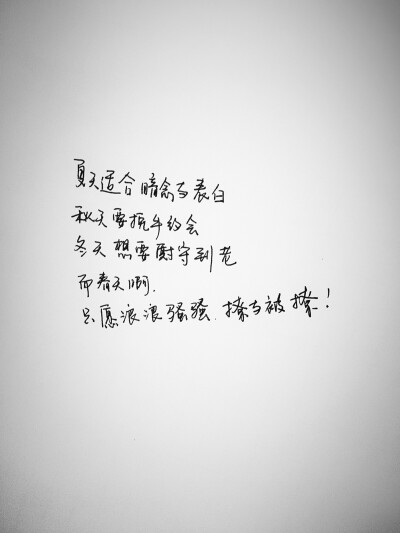 夏天适合暗念与表白
秋天要挽手约会
冬天想要厮守到老
而春天啊.
只愿浪浪骚骚.撩与被撩!